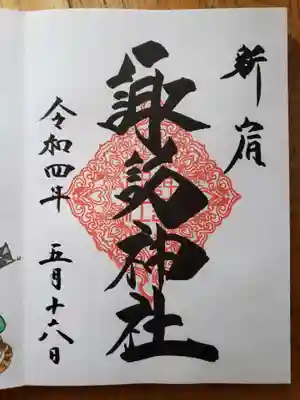 新宿
諏訪神社
令和四年 五月十六日